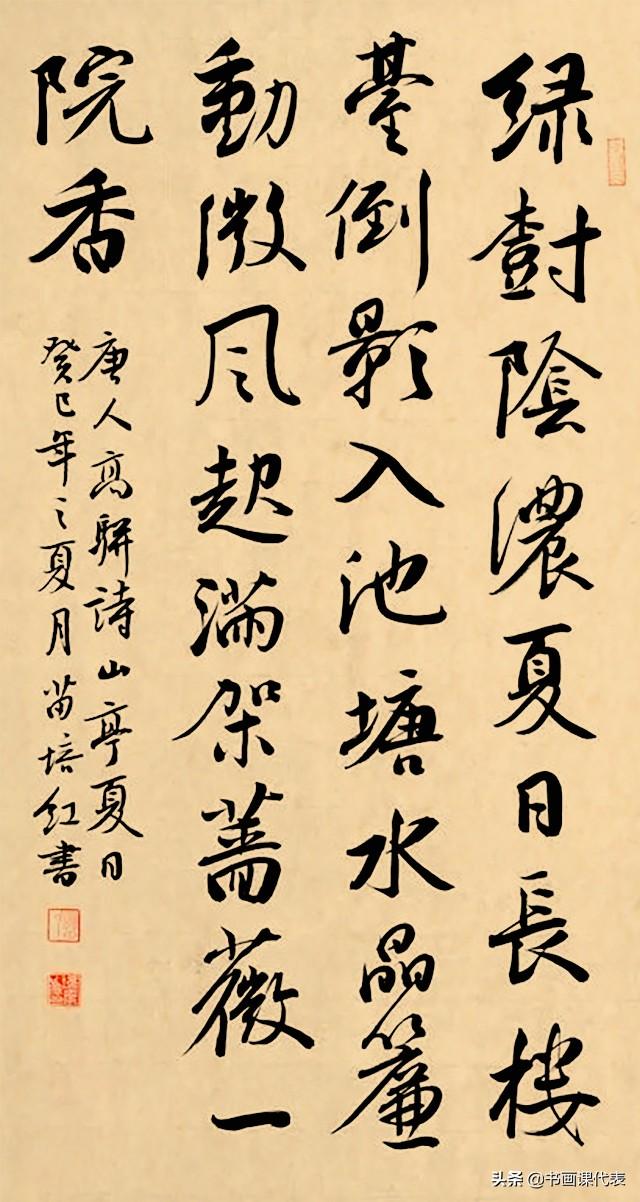 绿樹陰濃夏日長樓
臺倒影入池塘水晶簾
動微风起滿架薔薇一
院香
唐人高駢詩山亭夏日
癸巳年之夏月苗培红書
头条 @书画课代表